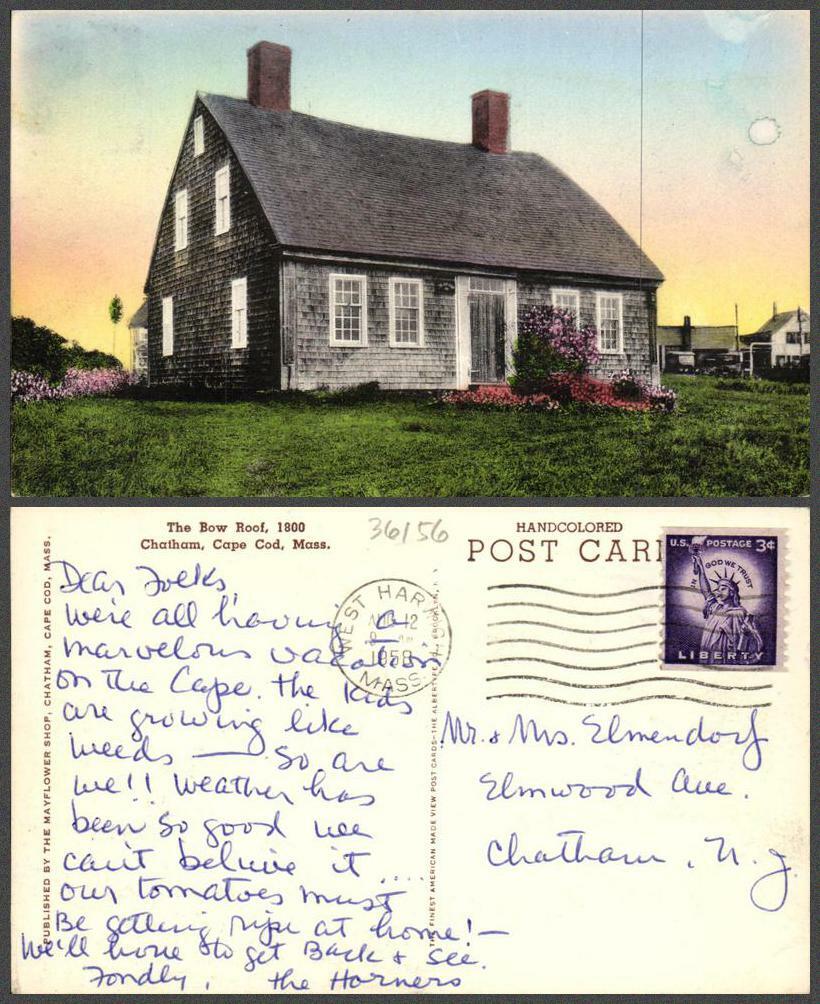 The Bow Roof, 1800
Chatham, Cape Cod, Mass.
36/56
HANDCOLORED
POST CARD
U.S. POSTAGE 3¢
IN GOD WE TRUST
LIBERTY
WEST HAR
AUG 12
1958
MASS.
PUBLISHED BY THE MAYFLOWER SHOP, CHATHAM, CAPE COD, MASS.
Dear Folks,
We're all havin' a
marvelous vacation
on the Cape. The Kids
are growing like
weeds — so are
we!! Weather has
been so good we
can't believe it ....
our tomatoes must
Be getting ripe at home! —
We'll have to get Back & see.
Fondly, the Horners
THE FINEST AMERICAN MADE VIEW POST CARDS—THE ALBERTYPE BROOKLYN, N.
Mr. & Mrs. Elmendorf
Elmwood Ave.
Chatham, N.J.